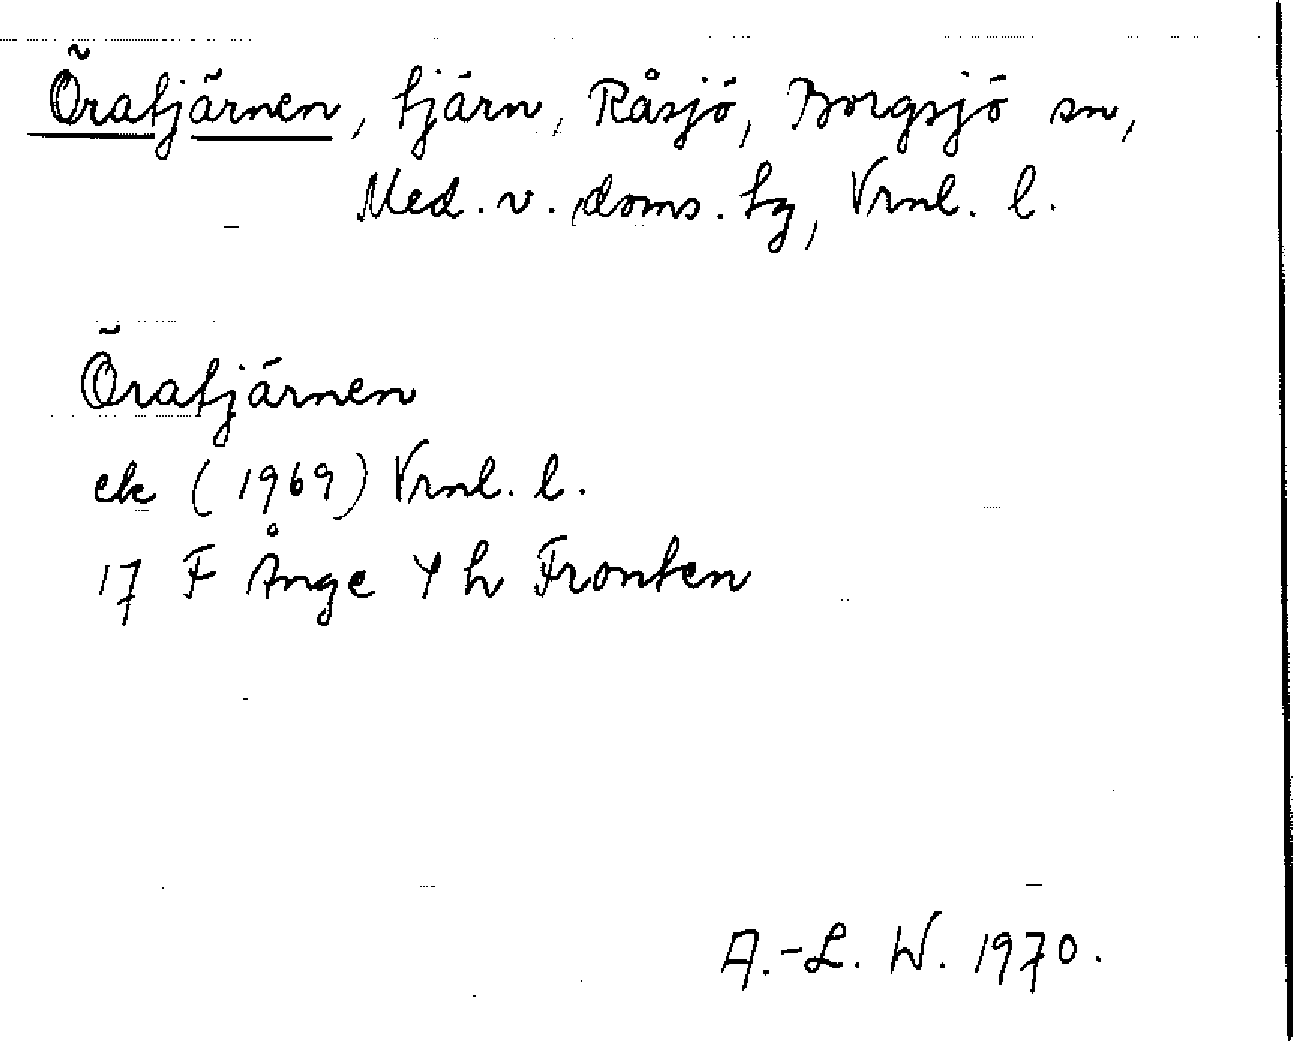 Öratjärnen, tjärn, Råsjö, Borgsjö sn,
Med. v. doms. tg, Vrnl. l.
Öratjärnen
ek (1969) Vrnl. l.
17 F Ånge 4 h Fronten
A.-L. W. 1970.